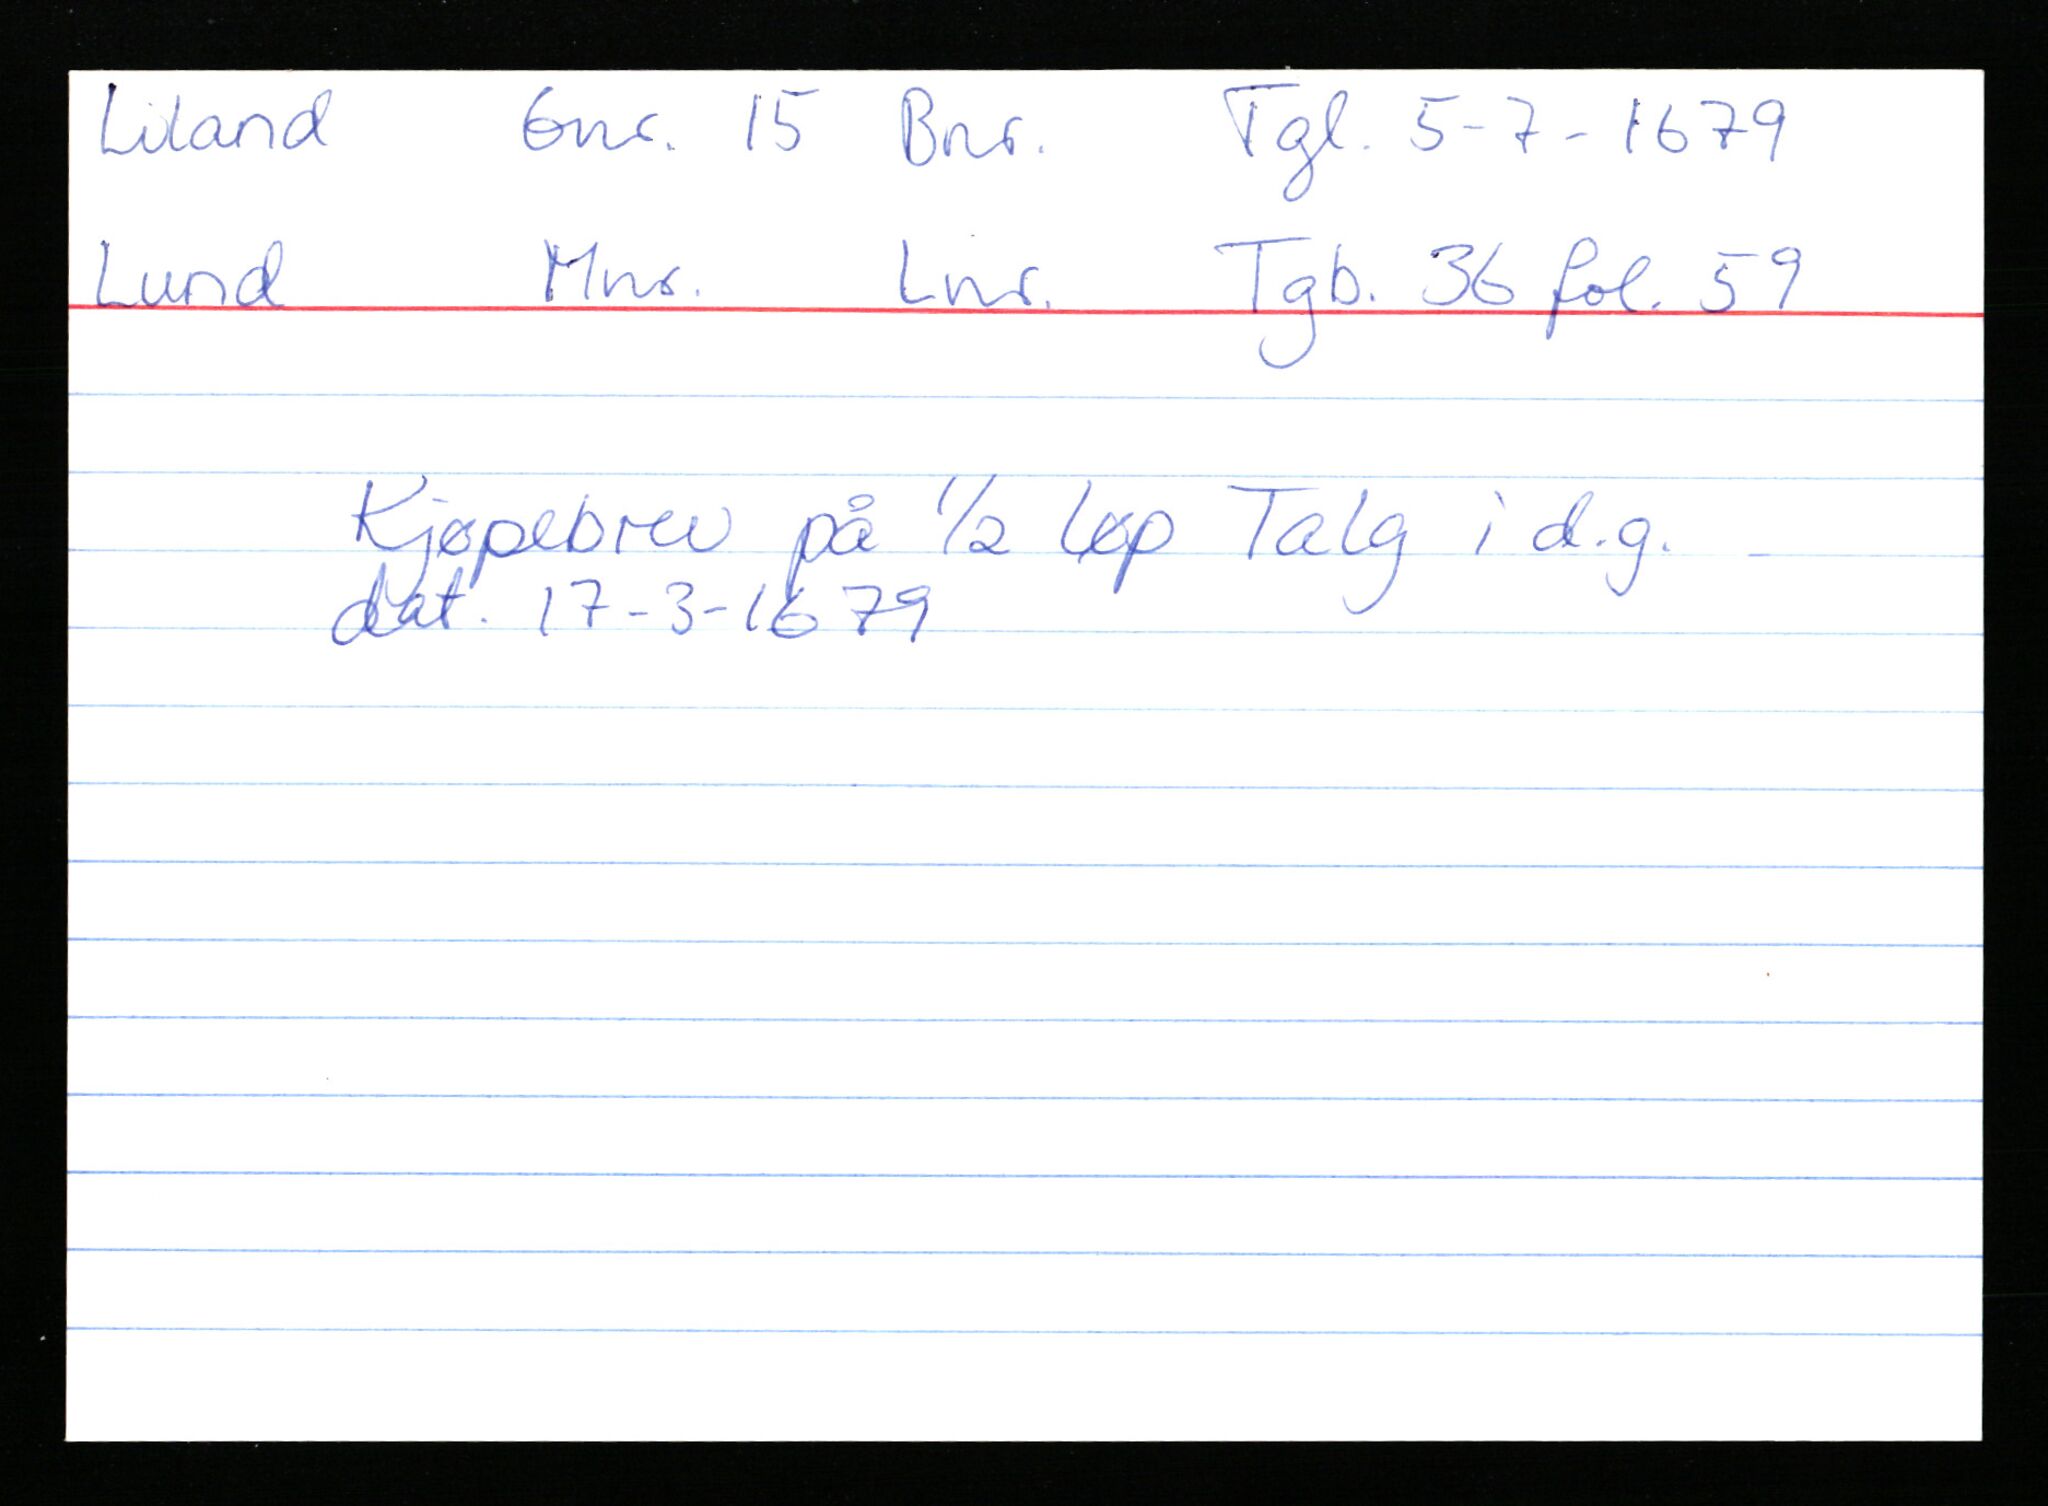 Liland Gnr. 15 Bnr. Tgl. 5-7-1679
Lund Mnr. Lnr. Tgb. 36 fol. 59
Kjøpebrev på 1/2 Løp Talg i d.g.
dat. 17-3-1679